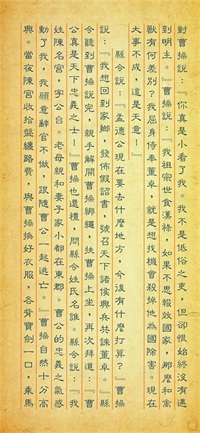 對曹操說：『你真是小看了我，我不是低俗之吏，但卻恨始終沒有遇
到明主。』曹操說：『我祖宗世食漢祿，如果不思報效國家，那麼和禽
獸有何差別？我屈身侍奉董卓，就是想找機會殺掉他為國除害。現在
大事不成，這是天意！』
縣令說：『孟德公現在要去什麼地方，今後有什麼打算？』曹操
說：『我想回到家鄉，發佈假詔書，號召天下諸侯興兵共誅董卓。』縣
令聽到曹操說完，親手解開曹操綁繩，扶曹操上坐，再次拜道：『曹
公真是天下忠義之士！』曹操也還禮，問縣令姓氏名誰。縣令說：『我
姓陳名宮，字公台。老母親和妻子家小都在東郡。曹公的忠義之氣感
動了我，我願意辭官不做，跟隨曹公一起逃亡。』曹操自然十分高
興。當夜陳宮收拾盤纏路費，與曹操換好衣服，各背寶劍一口，乘馬